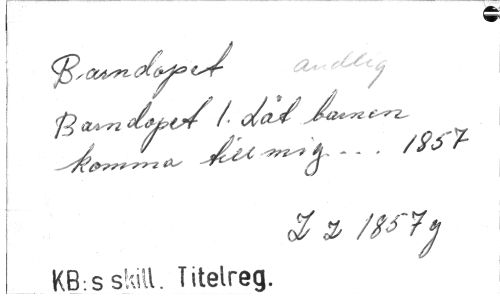 Barndopet andlig
Barndopet 1. Låt barnen
komma till mig... 1857
Z z 1857g
KB:s skill. Titelreg.